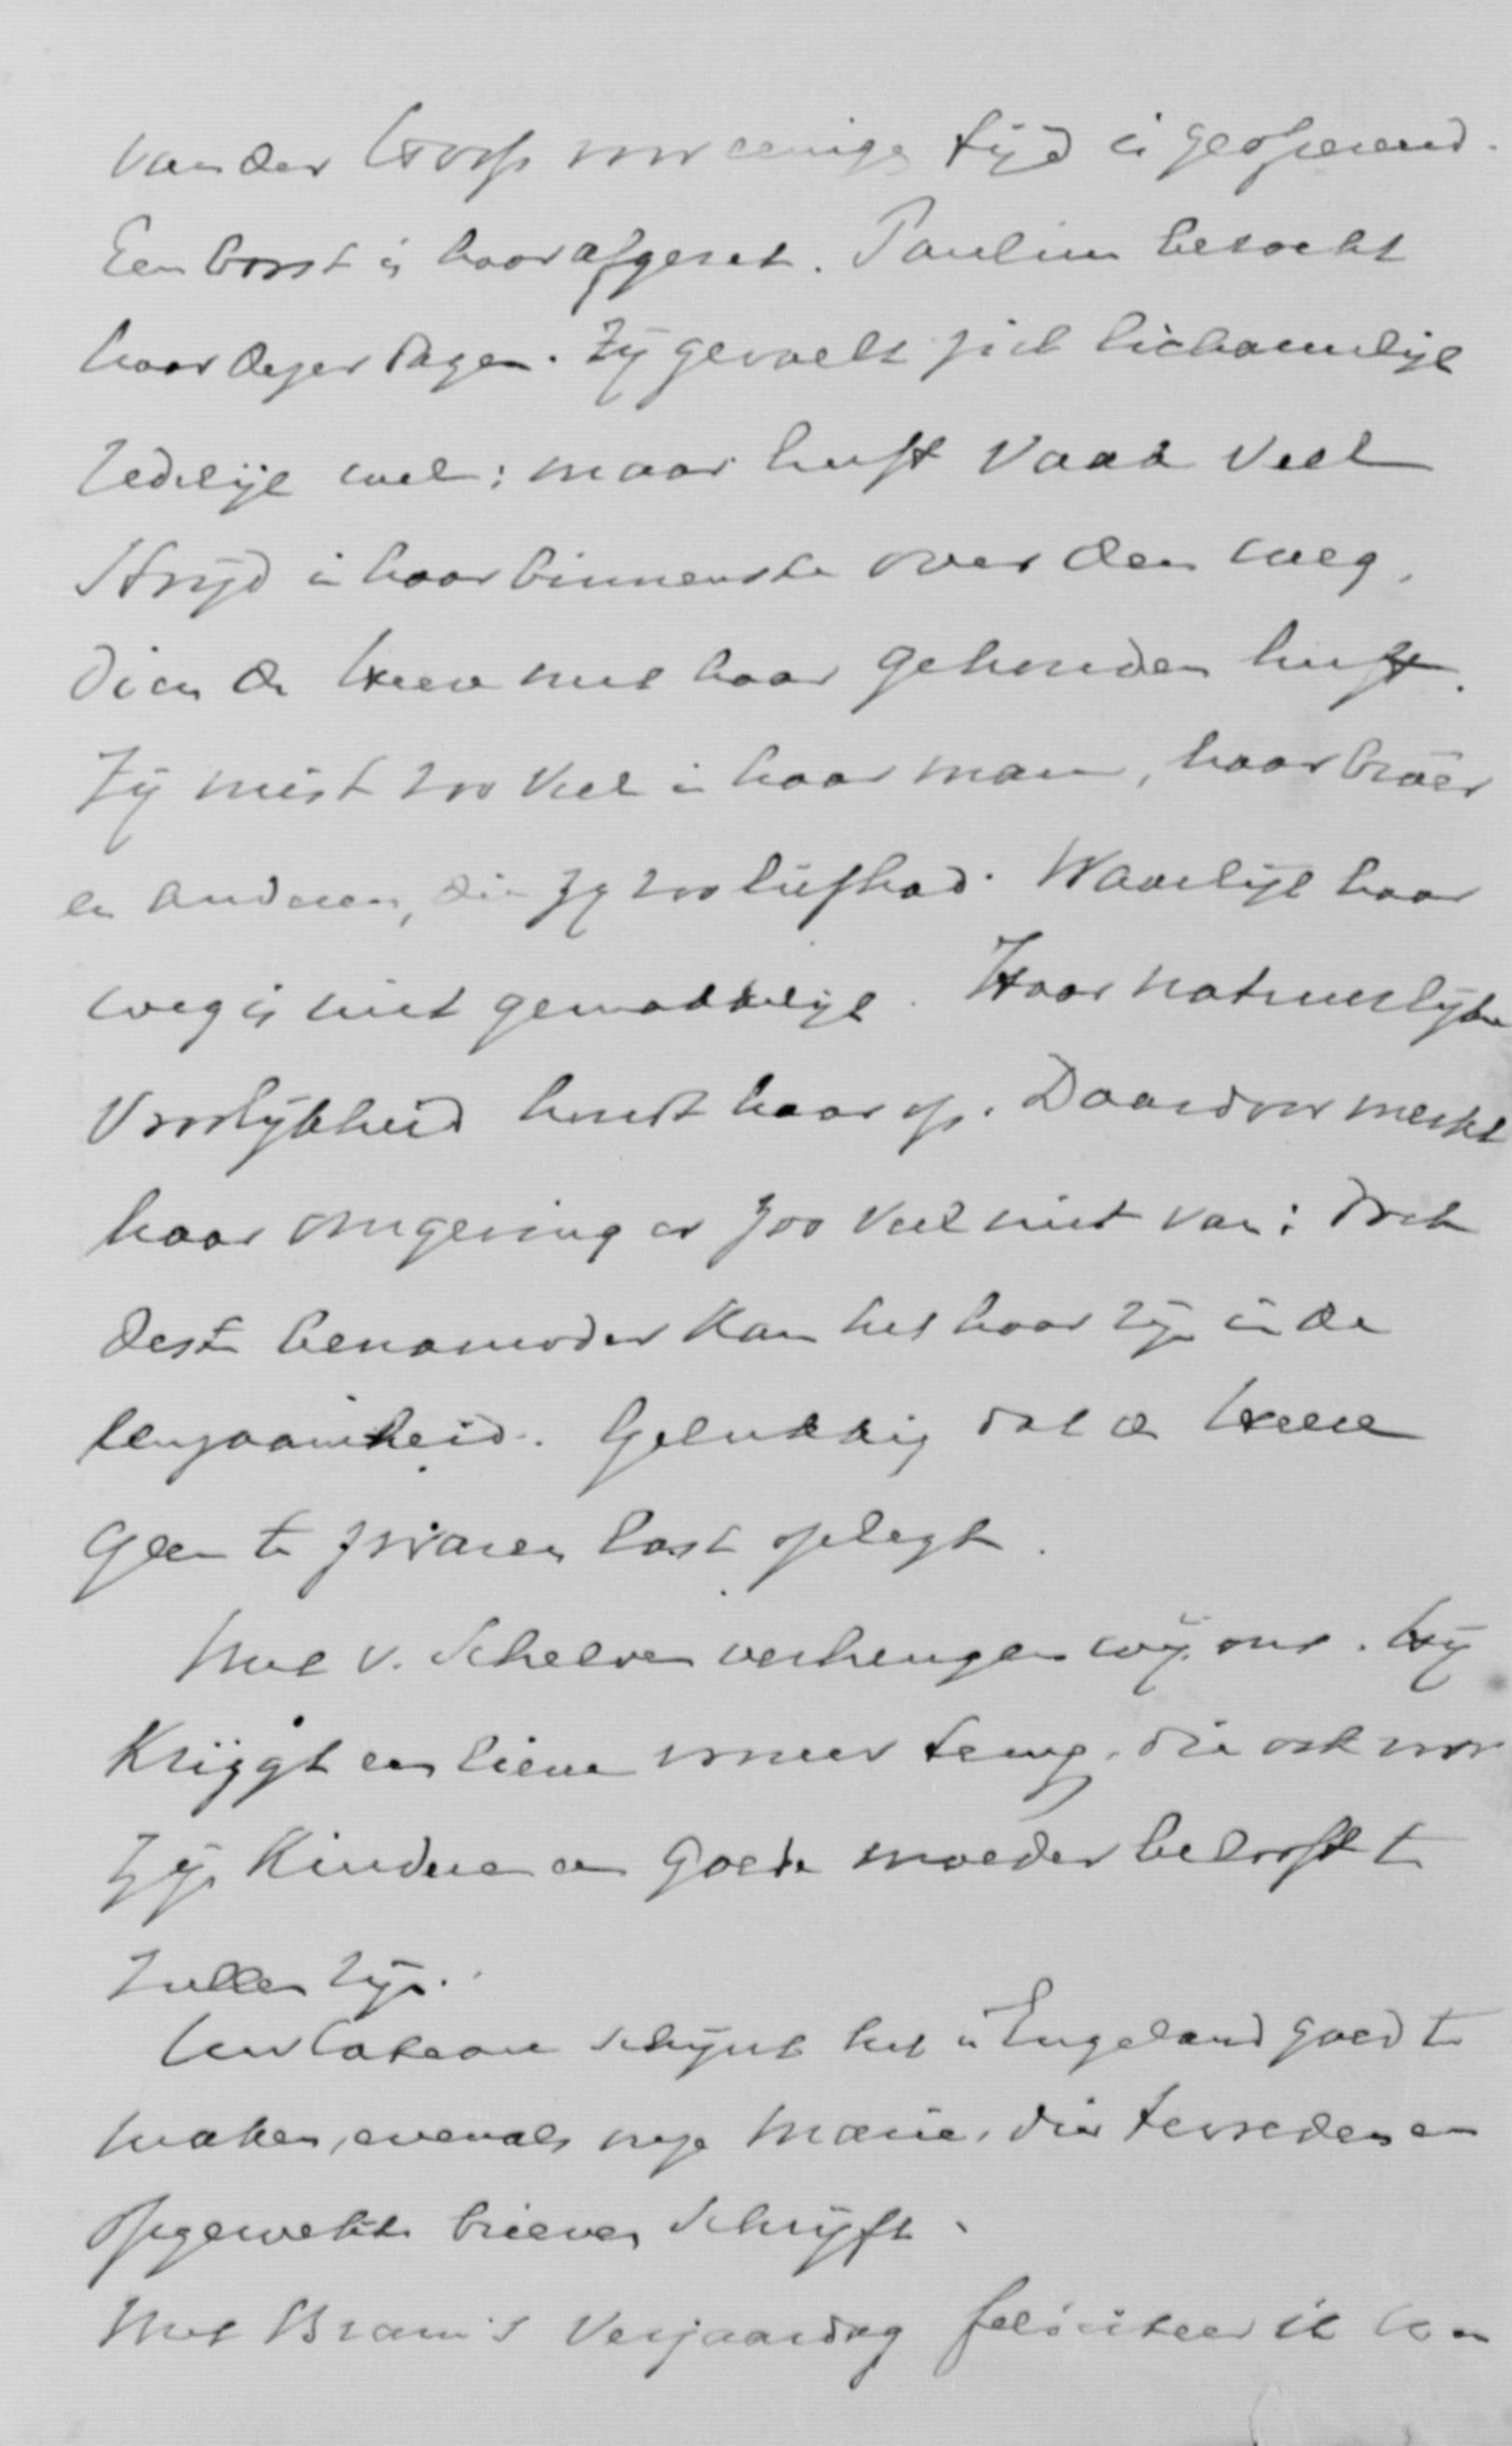 van der Gorp voor eenige tijd is geopereerd.
Een borst is haar afgezet. Pauline bezocht
haar dezer dagen. Zij gevoelt zich lichamelijk
redelijk wel; maar heeft vaak veel
strijd in haar binnenste over den weg,
dien de Heere met haar gehouden heeft.
Zij mist zoo veel in haar man, haar broer
en anderen, die zij zoo liefhad. Waarlijk haar
weg is niet gemakkelijk. Haar natuurlijke
vroolijkheid houdt haar op. Daardoor merkt
haar omgeving er zoo veel niet van; doch
des te benauwder kan het haar zijn in de
eenzaamheid. Gelukkig dat de Heere
geen te zwaren last oplegt.
Met v. Schelven verheugen wij ons. Hij
krijgt een lieve vrouw terug, die ook voor
zijn kinderen een goede moeder belooft te
zullen zijn.
schijnt het in Engeland goed te
maken, evenals onze Marie, die tevreden en
opgewekte brieven schrijft.
Met Bram's verjaardag feliciteer ik u en